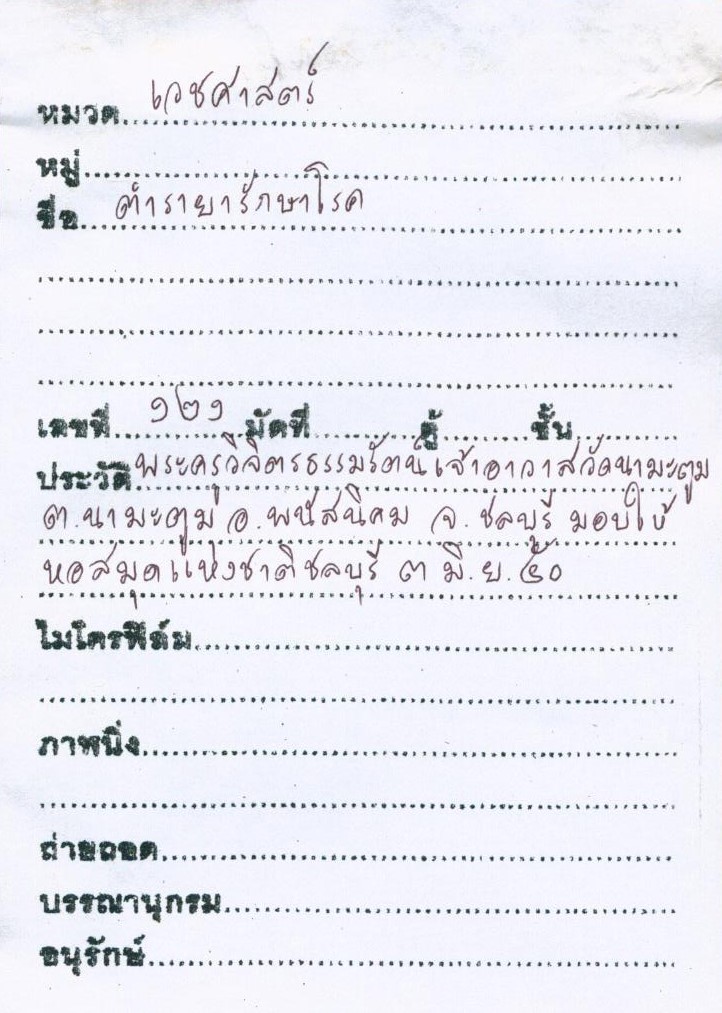 หมวด เวชศาสตร์
หมู่
ชื่อ ตำรายารักษาโรค
เลขที่ ๑๒๑ มัดที่ ตู้ ชั้น
ประวัติ พระครูวิจิตรธรรมรัตน์ เจ้าอาวาสวัดนามะตูม
ต.นามะตูม อ.พนัสนิคม จ.ชลบุรี มอบให้
หอสมุดแห่งชาติชลบุรี ๓ มิ.ย. ๔๐
ไมโครฟิล์ม
ภาพนิ่ง
ถ่ายถอด
บรรณานุกรม
อนุรักษ์